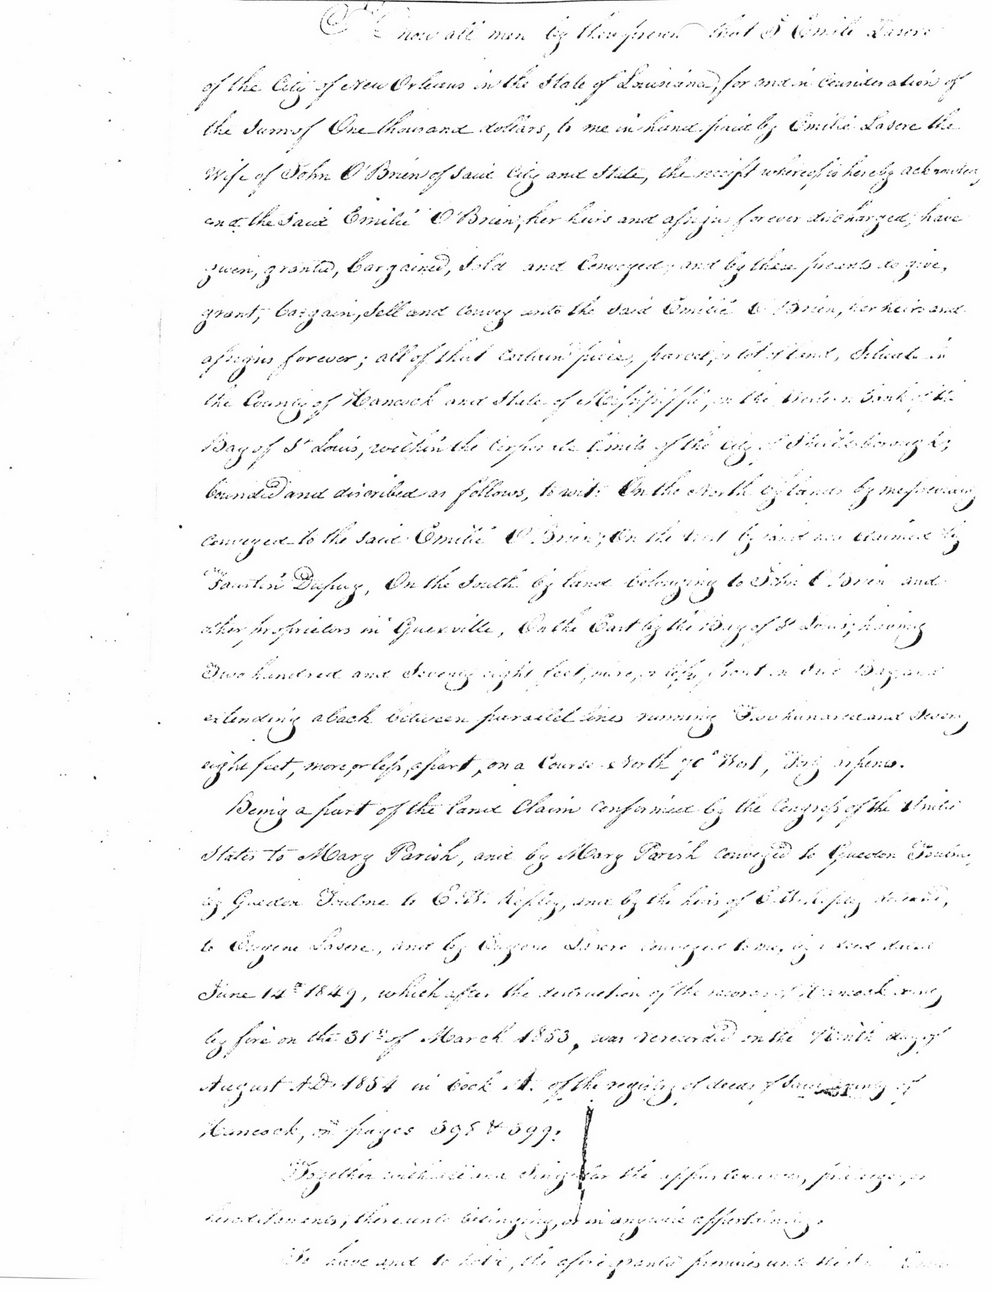 Know all men by these presents that I Emile Lasere
of the City of New Orleans in the State of Louisiana, for and in consideration of
the Sum of One thousand dollars, to me in hand paid by Emilie Lasere the
Wife of John O'Brien of said City and State, the receipt whereof is hereby acknowledged
and the said Emilie O'Brien, her heirs and assigns forever discharged, have
given, granted, bargained, sold and conveyed, and by these presents do give,
grant, bargain, sell and convey unto the said Emilie O'Brien, her heirs and
assigns forever; all of that certain piece, parcel, or lot of land, situate in
the County of Hancock and State of Mississippi, on the Western bank of the
Bay of St Louis, within the corporate limits of the City of Shieldsborough,
bounded and discribed as follows, to wit: On the North by lands by me previously
conveyed to the said Emilie O'Brien, On the West by land now claimed by
Faustin Dupuy, On the South by land belonging to John O'Brien and
other proprietors in Guexville, On the East by the Bay of St Louis, having
Two hundred and Seventy eight feet, more, or less, front on said Bay and
extending aback between paralel lines running Two hundred and Seventy
eight feet, more, or less, apart, on a Course North 70° West, Forty arpens.
Being a part of the land Claim confirmed by the Congress of the United
States to Mary Parish, and by Mary Parish conveyed to Guedon Toulme,
by Guedon Toulme to E.W. Ripley, and by the heirs of E.W. Ripley deceased,
to Eugene Lasere, and by Eugene Lasere conveyed to me, by a deed dated
June 14th 1849, which after the destruction of the records of Hancock County
by fire on the 31st of March 1853, was rerecorded on the Ninth day of
August A.D. 1854 in book A. of the registry of deeds of said County of
Hancock, on pages 398 & 399.
Together with all and Singular the appurtenances, privileges, or
hereditaments, thereunto belonging, or in anywise appertaining.
To have and to hold, the afore granted premises unto the said